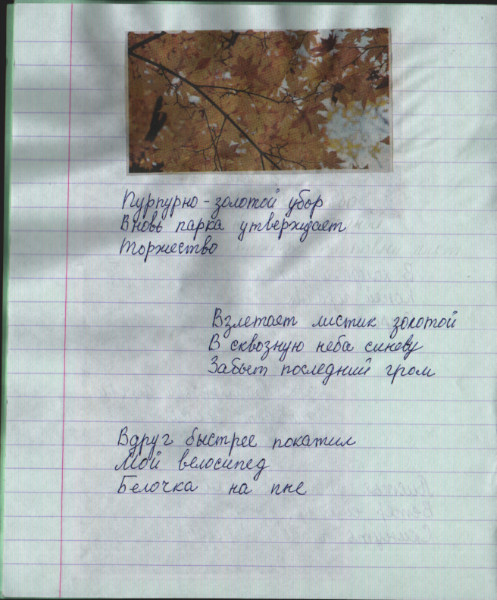 Пурпурно-золотой убор
Вновь парка утверждает
Торжество
Взлетает листик золотой
В сквозную неба синеву
Забыт последний гром
Вдруг быстрее покатил
Мой велосипед
Белочка на пне